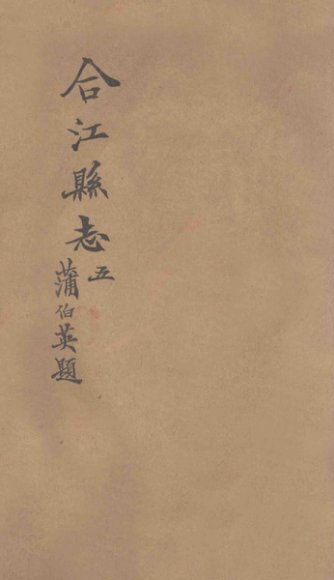 合江縣志
五
蒲伯英題